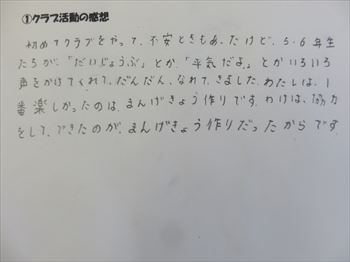 ①クラブ活動の感想
初めてクラブをやって、不安ときもあったけど、5・6年生
たちが、「だいじょうぶ」とか、「平気だよ」とかいろいろ
声をかけてくれて、だんだん、なれて、きました。わたしは、1
番楽しかったのは、まんげきょう作りです。わけは、協力
をして、できたのが、まんげきょう作りだったからです。